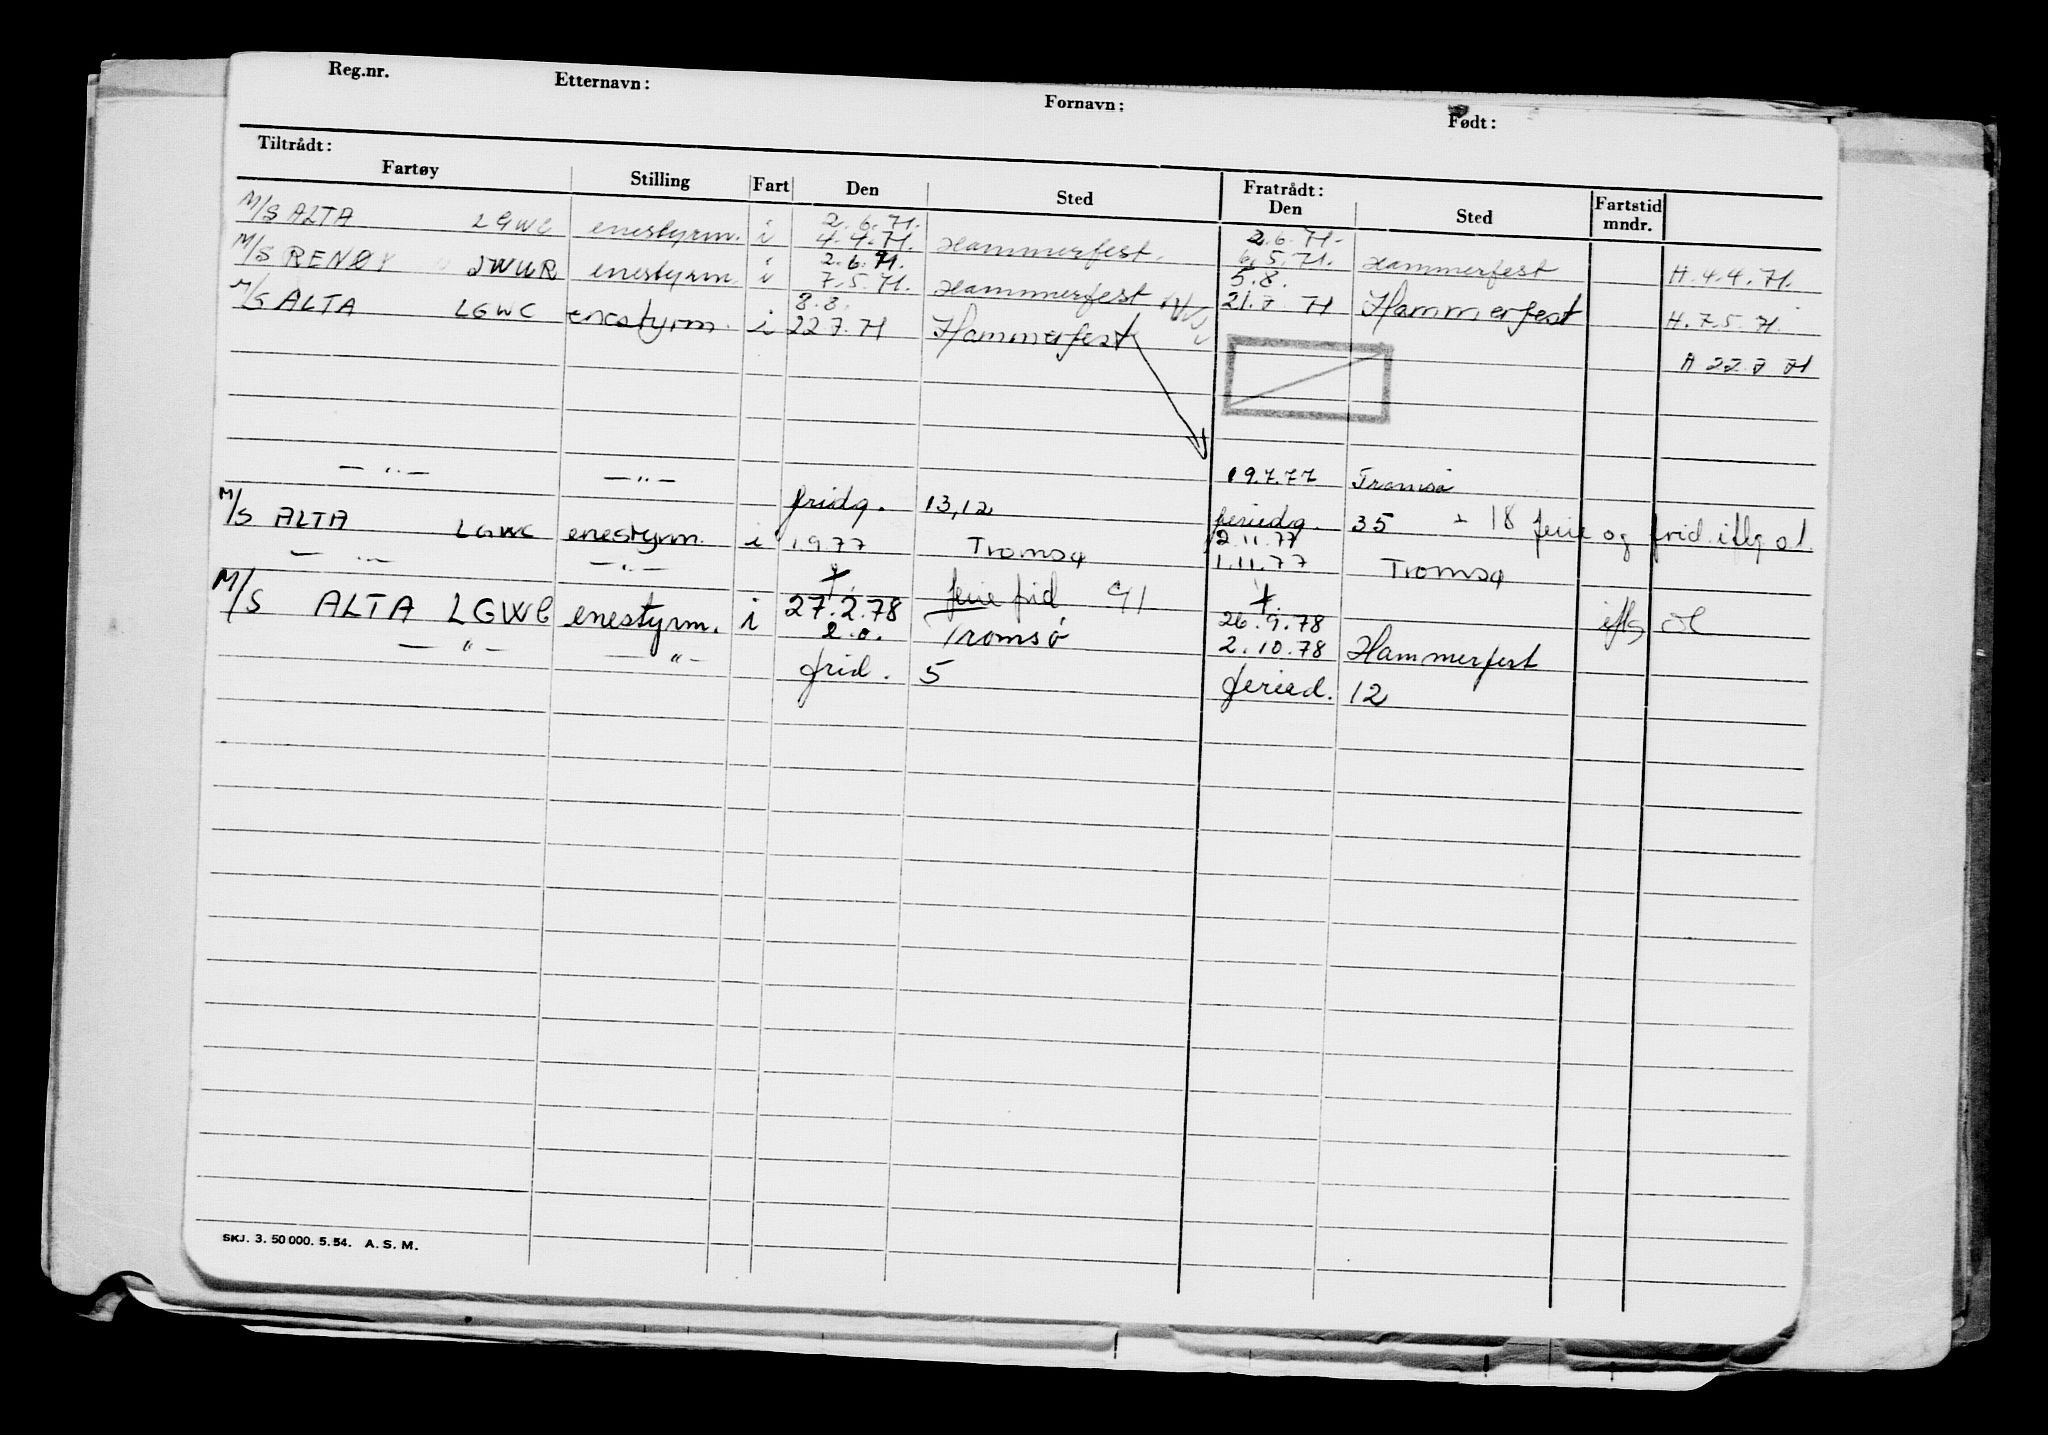 Reg.nr. Etternavn: Fornavn: Født:
Tiltrådt: Fratrådt:
Fartøy Stilling Fart Den Sted Den Sted Fartstid mndr.
2.6.71. 2.6.71-
M/S ALTA LGWC enestyrm. i 4.4.71. Hammerfest. 6.5.71. Hammerfest H.4.4.71.
i 2.6.71. 5.8.
M/S RENØY JWUR enestyrm. i 7.5.71. Hammerfest 21.7.71 Hammerfest H.7.5.71.
8.8.
M/S ALTA LGWC enestyrm. i 22.7.71 Hammerfest A 22.7 71
—"— —"— 19.7.77 Tromsø
fridg. 13,12 feriedg. 35 + 18 ferie og frid. iflg ol.
M/S ALTA LGWC enestyrm. i 1.9.77 Tromsø 2.11.77
—"— —"— 1.11.77 Tromsø
ferie frid 91 iflg ol
M/S ALTA LGWC enestyrm. i 27.2.78 Tromsø 26.9.78
—"— —"— e.o. 2.10.78 Hammerfest
frid. 5 feried. 12
SKJ. 3. 50 000. 5. 54. A. S. M.